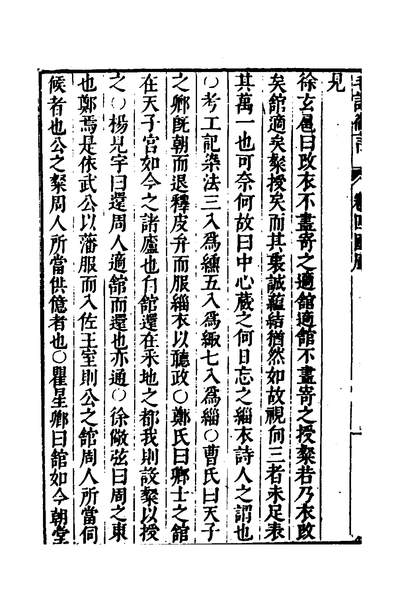 卷四國風
見
徐玄扈曰改衣不盡寄之適館適館不盡寄之授粲若乃衣改
矣館適矣粲授矣而其衷誠蘊結猶然如故視向三者未足表
其萬一也可奈何故曰中心藏之何日忘之緇衣詩人之謂也
○考工記染法三入為纁五入為緅七入為緇○曹氏曰天子
之卿旣朝而退釋皮弁而服緇衣以聽政○鄭氏曰卿士之館
在天子宮如今之諸廬也自館還在采地之都我則設粲以授
之○楊見宇曰還周人適館而還也亦通○徐儆弦曰周之東
也鄭焉是依武公以藩服而入佐王室則公之館周人所當伺
候者也公之粲周人所當供億者也○瞿星卿曰館如今朝堂